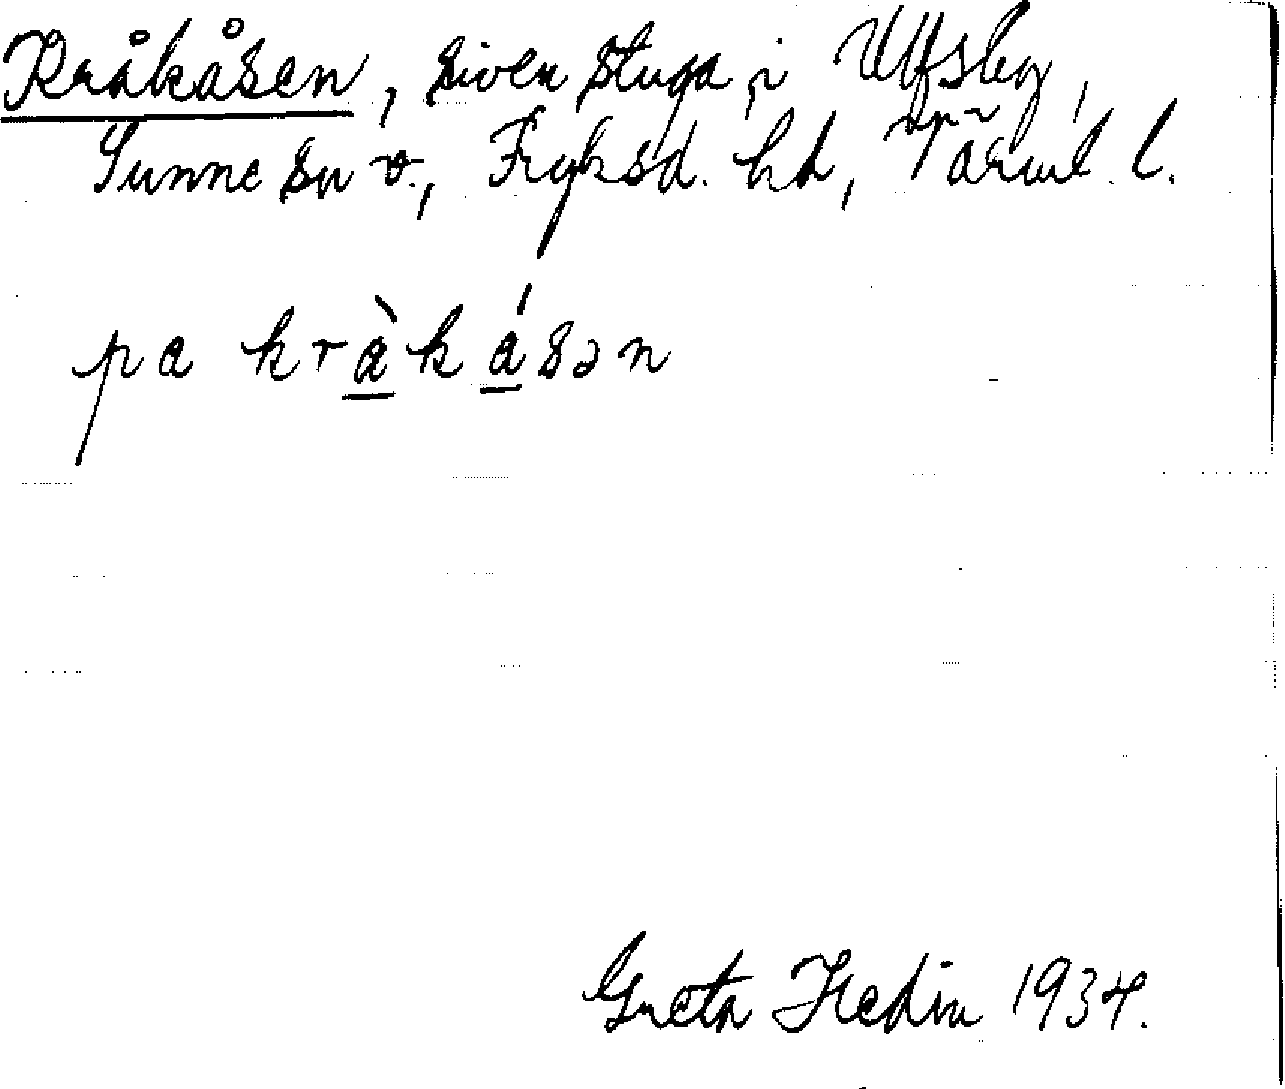 Kråkåsen, riven stuga i Ulfsby,
Sunne sn v., Fryksd. hd, Värml. l.
pa kràkásən
Greta Hedin 1934.